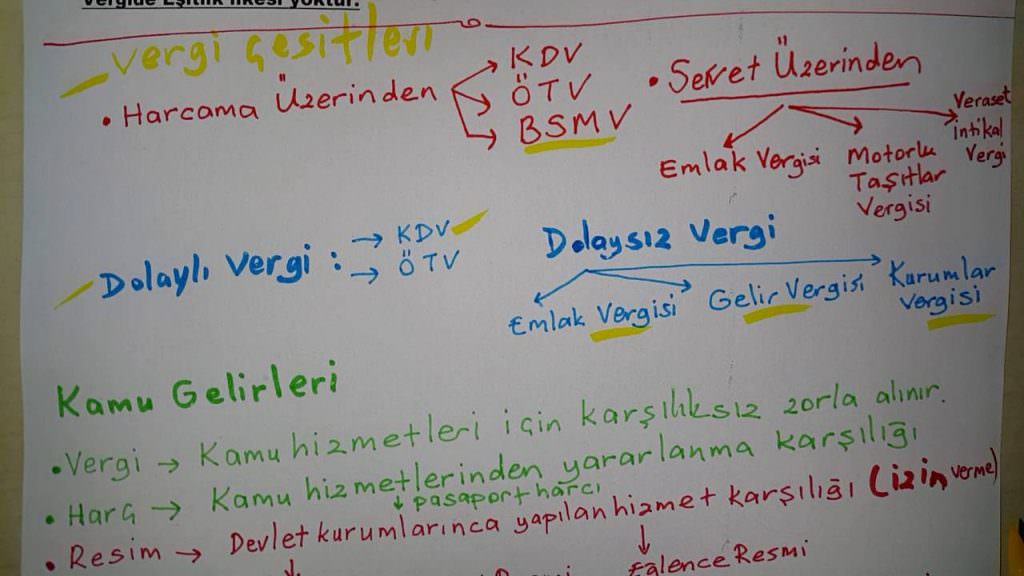 Vergide Eşitlik ilkesi yoktur.
Vergi Çeşitleri
• Harcama Üzerinden
KDV
ÖTV
BSMV
• Servet Üzerinden
Emlak Vergisi
Motorlu
Taşıtlar
Vergisi
Veraset
İntikal
Vergi
Dolaylı Vergi : → KDV
→ ÖTV
Dolaysız Vergi
Emlak Vergisi
Gelir Vergisi
Kurumlar
Vergisi
Kamu Gelirleri
• Vergi → Kamu hizmetleri için karşılıksız zorla alınır.
• Harç → Kamu hizmetlerinden yararlanma karşılığı
↓ pasaport harcı
• Resim → Devlet kurumlarınca yapılan hizmet karşılığı (izin verme)
Eğlence Resmi